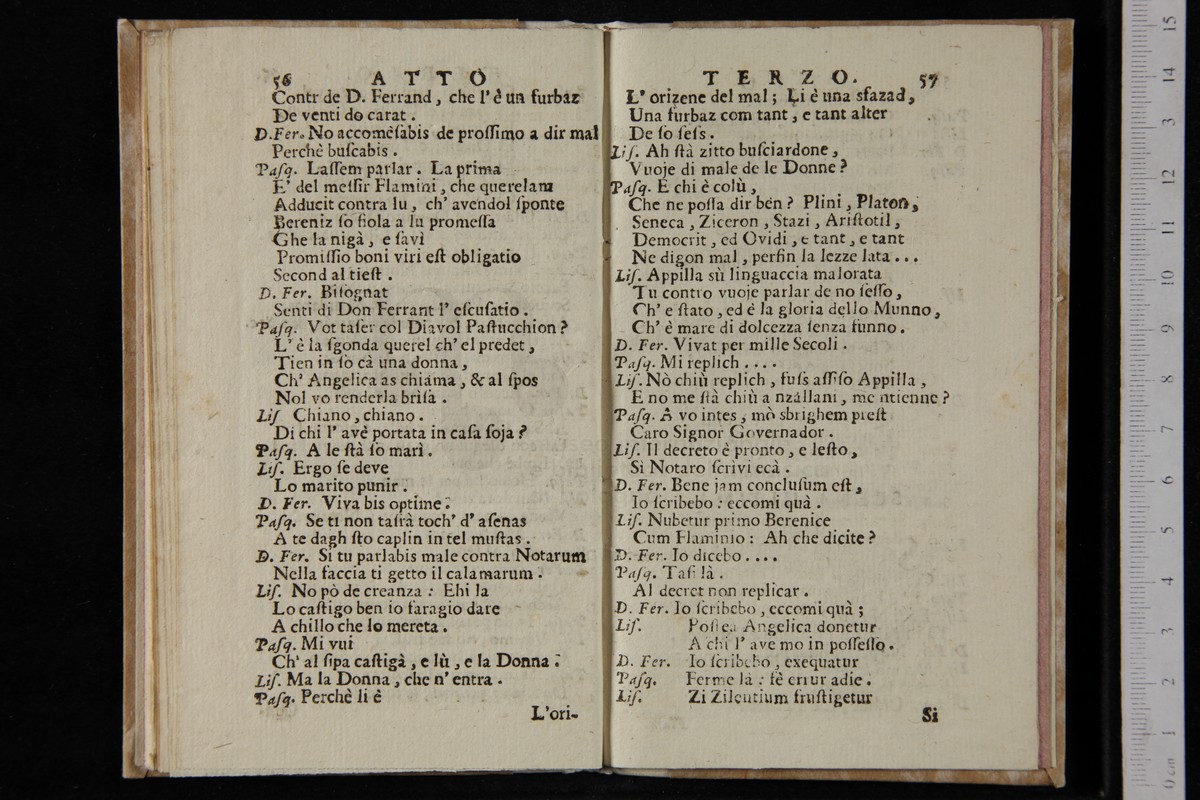 56 A T T O
Contr de D. Ferrand, che l' è un furbaz
De venti do carat.
D.Fer. No accomèſabis de proſſimo a dir mal
Perchè buſcabis.
Paſq. Laſſem parlar. La prima
E' del meſſir Flamini, che querelam
Adducit contra lu, ch' avendol ſponte
Bereniz ſo fiola a lu promeſſa
Ghe la nigà, e ſavì
Promiſſio boni viri eſt obligatio
Second al tieſt.
D. Fer. Biſognat
Senti di Don Ferrant l' eſcuſatio.
Paſq. Vot taſèr col Diavol Paſtucchion?
L' è la ſgonda querel ch' el predet,
Tien in ſò cà una donna,
Ch' Angelica as chiama, & al ſpos
Nol vo renderla briſa.
Liſ Chiano, chiano.
Di chi l' avè portata in caſa ſoja?
Paſq. A le ſtà ſo marì.
Liſ. Ergo ſe deve
Lo marito punir.
D. Fer. Viva bis optime.
Paſq. Se ti non taſrà toch' d' aſenas
A te dagh ſto caplin in tel muſtas.
D. Fer. Si tu parlabis male contra Notarum
Nella faccia ti getto il calamarum.
Liſ. No pò de creanza: Ehi la
Lo caſtigo ben io faragio dare
A chillo che lo mereta.
Paſq. Mi vui
Ch' al ſipa caſtigà, e lù, e la Donna.
Liſ. Ma la Donna, che n' entra.
Paſq. Perchè li è
L'ori-
T E R Z O. 57
L' orizene del mal; Li è una sfazad,
Una furbaz com tant, e tant alter
De ſò ſeſs.
Liſ. Ah ſtà zitto buſciardone,
Vuoje di male de le Donne?
Paſq. E chi è colù,
Che ne poſſa dir bèn? Plini, Platon,
Seneca, Ziceron, Stazi, Ariſtotil,
Democrit, ed Ovidi, e tant, e tant
Ne digon mal, perfin la lezze lata...
Liſ. Appilla sù linguaccia malorata
Tu contro vuoje parlar de no ſeſſo,
Ch' e ſtato, ed é la gloria dello Munno,
Ch' è mare di dolcezza ſenza funno.
D. Fer. Vivat per mille Secoli.
Paſq. Mi replich....
Liſ. Nò chiù replich, fuſs aſſiſo Appilla,
E no me ſtà chiù a nzállani, me ntienne?
Paſq. A vo intes, mò sbrighem preſt
Caro Signor Governador.
Liſ. Il decreto è pronto, e leſto,
Sì Notaro ſcrivi ecà.
D. Fer. Bene jam concluſum eſt,
Io ſcribebo: eccomi quà.
Liſ. Nubetur primo Berenice
Cum Flaminio: Ah che dicite?
D. Fer. Io dicebo....
Paſq. Taſi là.
Al decret non replicar.
D. Fer. Io ſcribebo, eccomi quà;
Liſ. Poſtea Angelica donetur
A chi l' ave mo in poſſeſſo.
D. Fer. Io ſcribebo, exequatur
Paſq. Ferme là: ſè errur adie.
Liſ. Zi Zilentium fruſtigetur
Si